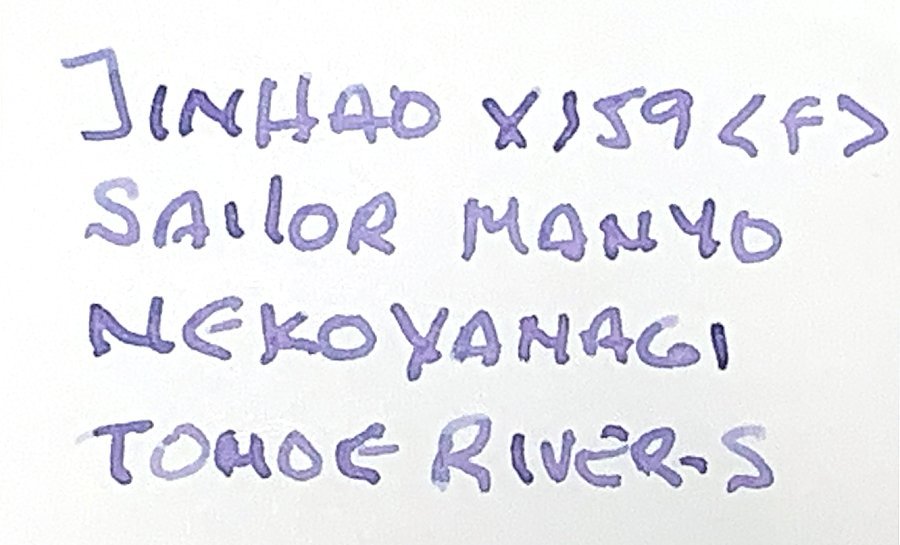 JINHAO X159 <F>
SAILOR MANYO
NEKOYANAGI
TOMOE RIVER-S